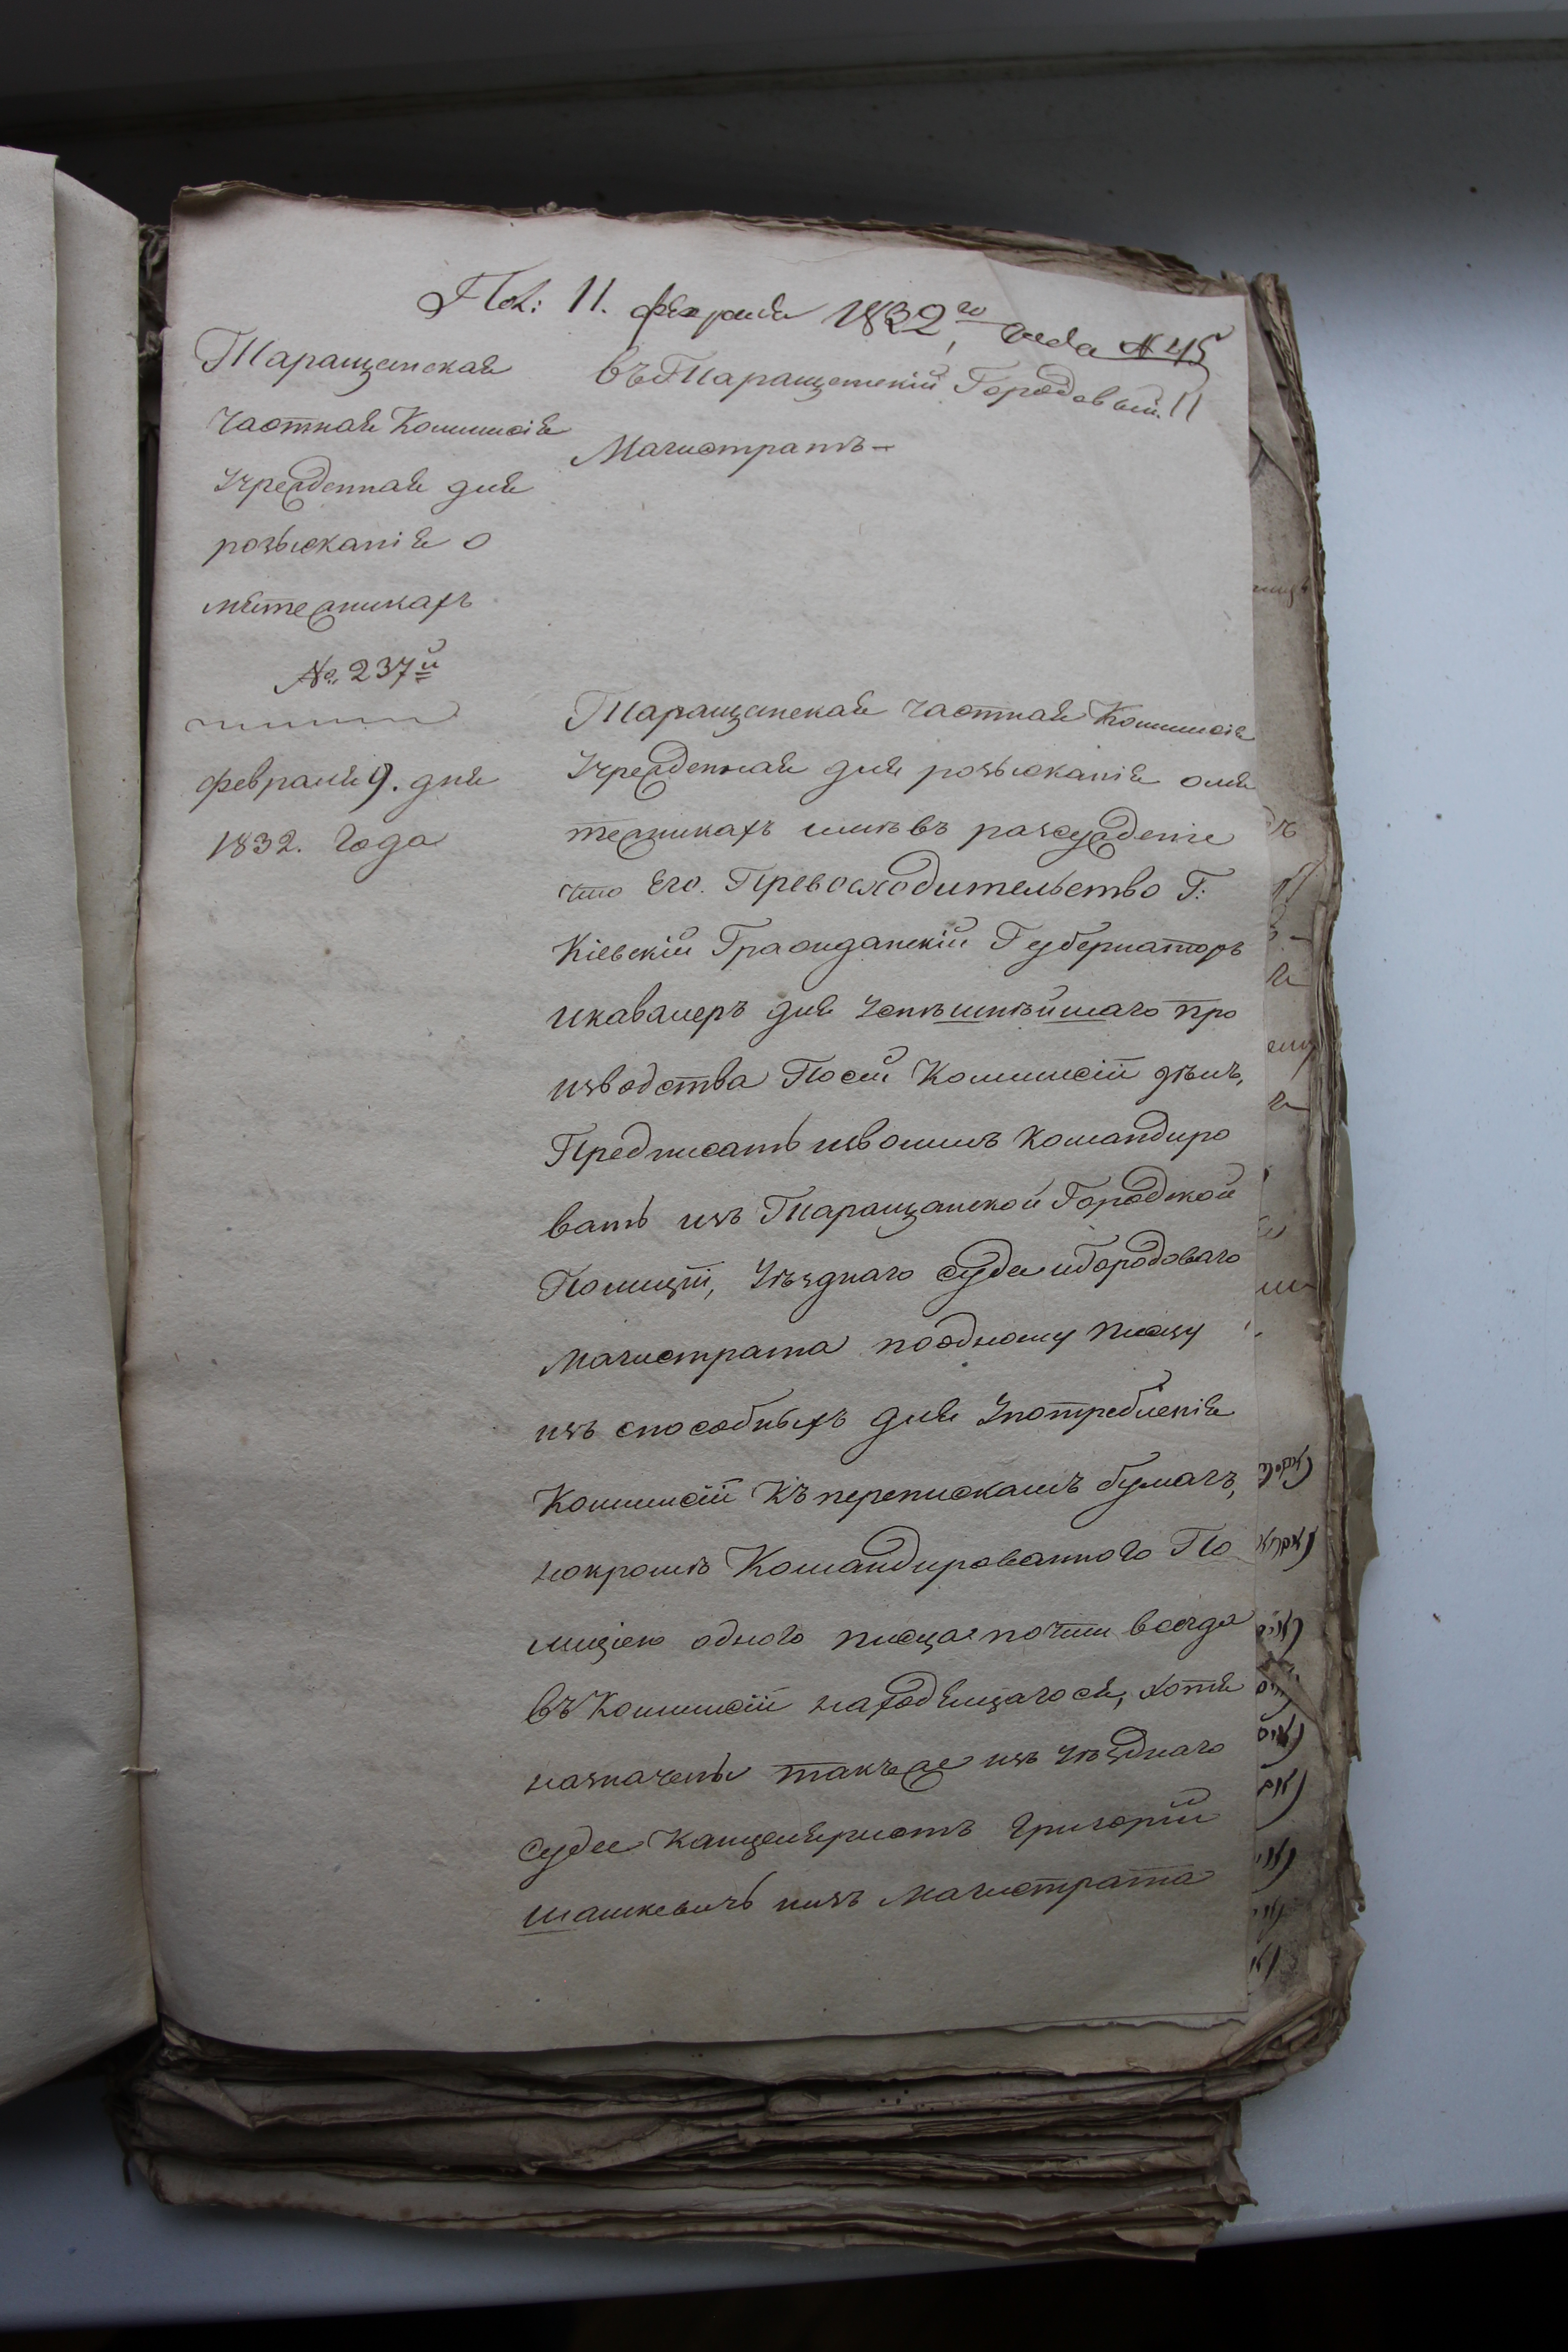 Пол: 11. февраля 1832го года № 45
Таращанская
частная Коммисія
Учрежденная для
розысканія о
мятежникахъ
№ 237й
февраля 9. дня
1832. Года
въ Таращанскій Городовый
Магистратъ
Таращанская частная Коммисія
Учрежденная для розысканія омя
тежникахъ имѣвъ разсужденіе
что Его. Превосходительство Г:
Кіевскій Гражданскій Губернаторъ
икавалеръ для Успѣшнѣйшаго про
изводства Посей Коммисіи дѣлъ,
Предписать изволилъ командиро
вать изъ Таращанской Городской
Полиціи, Уѣзднаго суда иГородоваго
Магистрата поодному писцу
изъ способныхъ для Употребленія
Коммисіи Къ перепискамъ бумагъ,
нокромѣ Командированного По
лиціею одного писца почти всегда
въ Коммисіи находящагося, хотя
назначены такъже изъ Уѣзднаго
суда Канцеляристъ Григорій
Шашкевичъ иизъ Магистрата